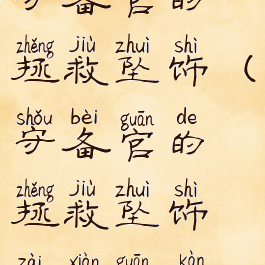 守备官的
zhěng jiù zhuì shì
拯救坠饰（
shǒu bèi guān de
守备官的
zhěng jiù zhuì shì
拯救坠饰
zài xiàn guān kàn